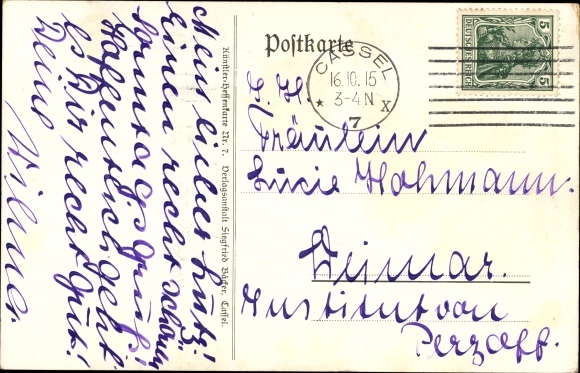 Mein lieber Lutz!
Einen recht schönen
Sonntagsgruß!
Hoffentlich geht
es Dir recht gut!
Deine
Künstler-Hessenkarte Nr. 7. Verlagsanstalt Siegfried Bäcker, Cassel.
Postkarte
CASSEL
16.10.15
3-4 N
* X
7
5 5
DEUTSCHES REICH
Fräulein
Lucie Hohmann.
Weimar.
Institut von